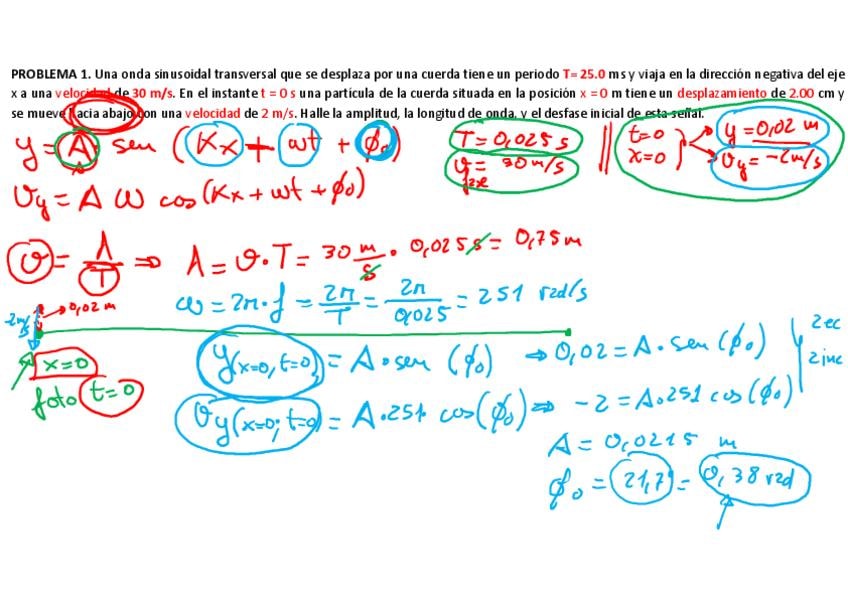 PROBLEMA 1. Una onda sinusoidal transversal que se desplaza por una cuerda tiene un periodo T= 25.0 ms y viaja en la dirección negativa del eje
x a una velocidad de 30 m/s. En el instante t = 0 s una partícula de la cuerda situada en la posición x = 0 m tiene un desplazamiento de 2.00 cm y
se mueve hacia abajo con una velocidad de 2 m/s. Halle la amplitud, la longitud de onda, y el desfase inicial de esta señal.
y = A sen (Kx + wt + ϕ₀)
T = 0,025 s
t=0
x=0
y = 0,02 m
vy = -2m/s
vy = A ω cos (Kx + wt + ϕ₀)
v = λ/T ⇒ λ = v·T = 30 m/s · 0,025 s = 0,75 m
ω = 2π·f = 2π/T = 2π/0,025 = 251 rad/s
-2m/s
→ 0,02 m
x=0
foto t=0
y(x=0, t=0) = A · sen (ϕ₀) → 0,02 = A · sen (ϕ₀)
vy(x=0; t=0) = A·251 cos(ϕ₀) ⇒ -2 = A·251 cos(ϕ₀)
2ec
2inc
A = 0,0215 m
ϕ₀ = 21,7 = 0,38 rad